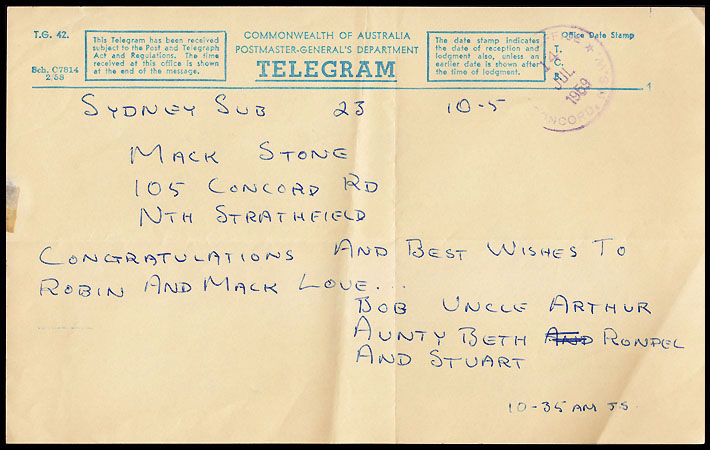 T.G. 42.
Sch. C7814
2/58
This Telegram has been received
subject to the Post and Telegraph
Act and Regulations. The time
received at this office is shown
at the end of the message.
COMMONWEALTH OF AUSTRALIA
POSTMASTER-GENERAL'S DEPARTMENT
TELEGRAM
The date stamp indicates
the date of reception and
lodgment also, unless an
earlier date is shown after
the time of lodgment.
Office Date Stamp
T.
JUL
1969
CONCORD
SYDNEY SUB 23 10-5
MACK STONE
105 CONCORD RD
NTH STRATHFIELD
CONGRATULATIONS AND BEST WISHES TO
ROBIN AND MACK LOVE...
BOB UNCLE ARTHUR
AUNTY BETH AND RONPEL
AND STUART
10-35 AM JS